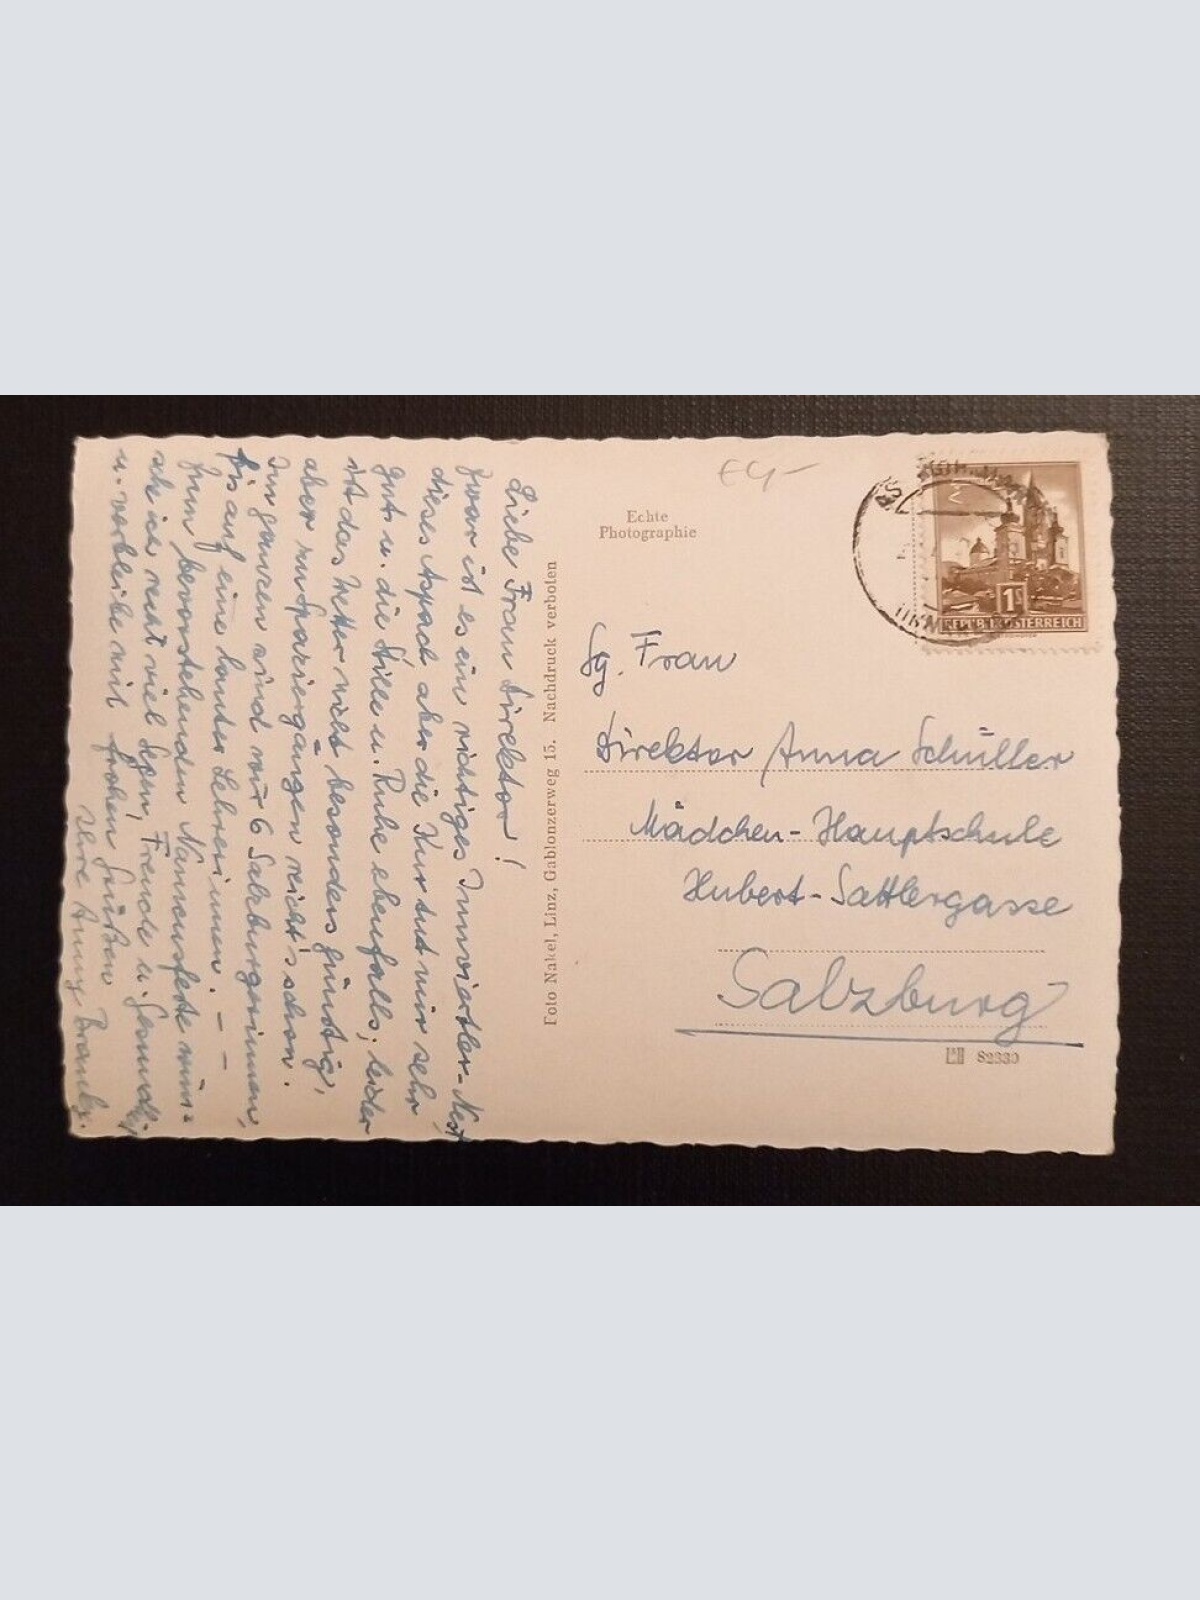 Liebe Frau Direktor!
Zwar ist es ein richtiges Innviertler-Nest
dieses Aspach aber die Kur tut mir sehr
gut u. die Stille u. Ruhe ebenfalls; leider
ist das Wetter nicht besonders günstig,
aber zu Spaziergängen reicht's schon.
Im ganzen sind wir 6 Salzburgerinnen,
bis auf eine lauter Lehrerinnen. – –
Zum bevorstehenden Namensfeste wün=
sche ich recht viel Segen, Freude u. Gesundheit
u. verbleibe mit frohen Grüßen
Ihre Anny
Foto Nakel, Linz, Gablonzerweg 15. Nachdruck verboten
Echte
Photographie
1S
REPUBLIK ÖSTERREICH
Sg. Frau
Direktor Anna Schüller
Mädchen-Hauptschule
Hubert-Sattlergasse
Salzburg
82330